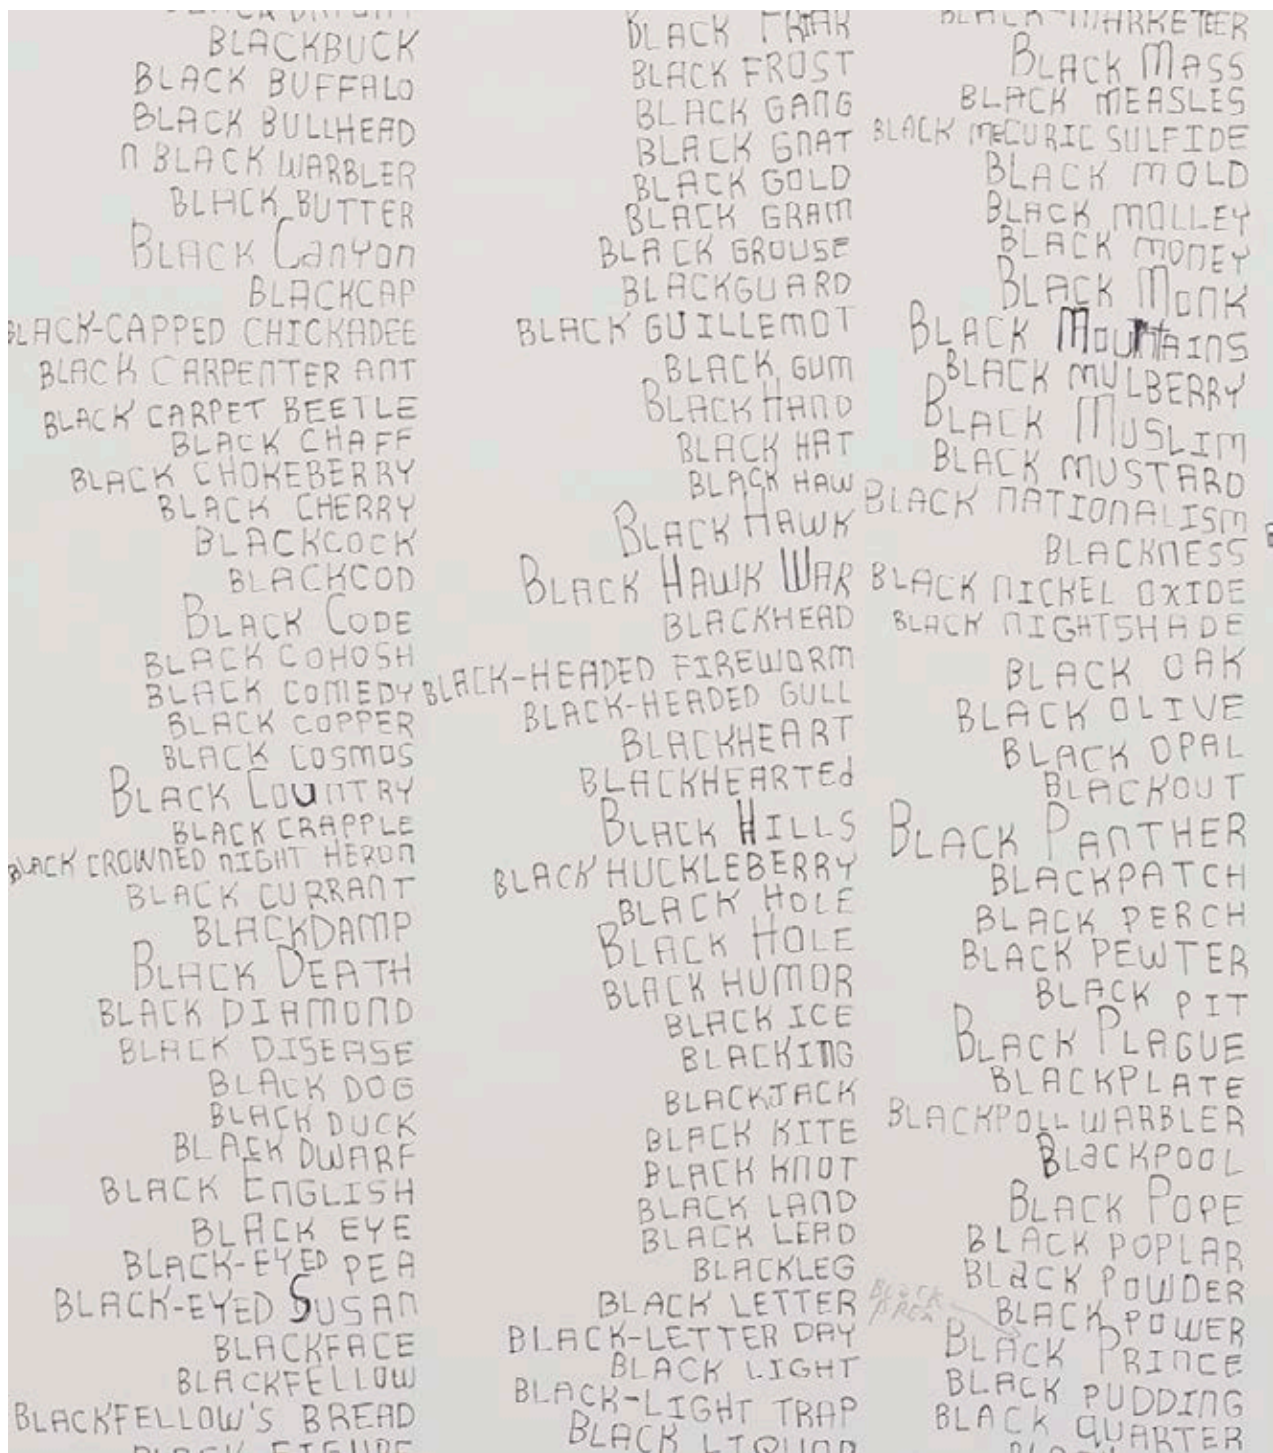 BLACKBUCK
BLACK BUFFALO
BLACK BULLHEAD
N BLACK WARBLER
BLACK BUTTER
BLACK CANYON
BLACKCAP
BLACK-CAPPED CHICKADEE
BLACK CARPENTER ANT
BLACK CARPET BEETLE
BLACK CHAFF
BLACK CHOKEBERRY
BLACK CHERRY
BLACKCOCK
BLACKCOD
BLACK CODE
BLACK COHOSH
BLACK COMEDY
BLACK COPPER
BLACK COSMOS
BLACK COUNTRY
BLACK CRAPPLE
BLACK CROWNED NIGHT HERON
BLACK CURRANT
BLACKDAMP
BLACK DEATH
BLACK DIAMOND
BLACK DISEASE
BLACK DOG
BLACK DUCK
BLACK DWARF
BLACK ENGLISH
BLACK EYE
BLACK-EYED PEA
BLACK-EYED SUSAN
BLACKFACE
BLACKFELLOW
BLACKFELLOW'S BREAD
BLACK FIGURE
BLACK FRIAR
BLACK FROST
BLACK GANG
BLACK GNAT
BLACK GOLD
BLACK GRAM
BLACK GROUSE
BLACKGUARD
BLACK GUILLEMOT
BLACK GUM
BLACK HAND
BLACK HAT
BLACK HAW
BLACK HAWK
BLACK HAWK WAR
BLACKHEAD
BLACK-HEADED FIREWORM
BLACK-HEADED GULL
BLACKHEART
BLACKHEARTEd
BLACK HILLS
BLACK HUCKLEBERRY
BLACK HOLE
BLACK HOLE
BLACK HUMOR
BLACK ICE
BLACKING
BLACKJACK
BLACK KITE
BLACK KNOT
BLACK LAND
BLACK LEAD
BLACKLEG
BLACK LETTER
BLACK-LETTER DAY
BLACK LIGHT
BLACK-LIGHT TRAP
BLACK LIQUOR
BLACK-MARKETEER
BLACK MASS
BLACK MEASLES
BLACK MECURIC SULFIDE
BLACK MOLD
BLACK MOLLEY
BLACK MONEY
BLACK MONK
BLACK MOUNTAINS
BLACK MULBERRY
BLACK MUSLIM
BLACK MUSTARD
BLACK NATIONALISM
BLACKNESS
BLACK NICKEL OXIDE
BLACK NIGHTSHADE
BLACK OAK
BLACK OLIVE
BLACK OPAL
BLACKOUT
BLACK PANTHER
BLACKPATCH
BLACK PERCH
BLACK PEWTER
BLACK PIT
BLACK PLAGUE
BLACKPLATE
BLACKPOLL WARBLER
BLaCKPOOL
BLACK POPE
BLACK POPLAR
BLaCK POWDER
BLACK POWER
BLACK PRINCE
BLACK PUDDING
BLACK QUARTER